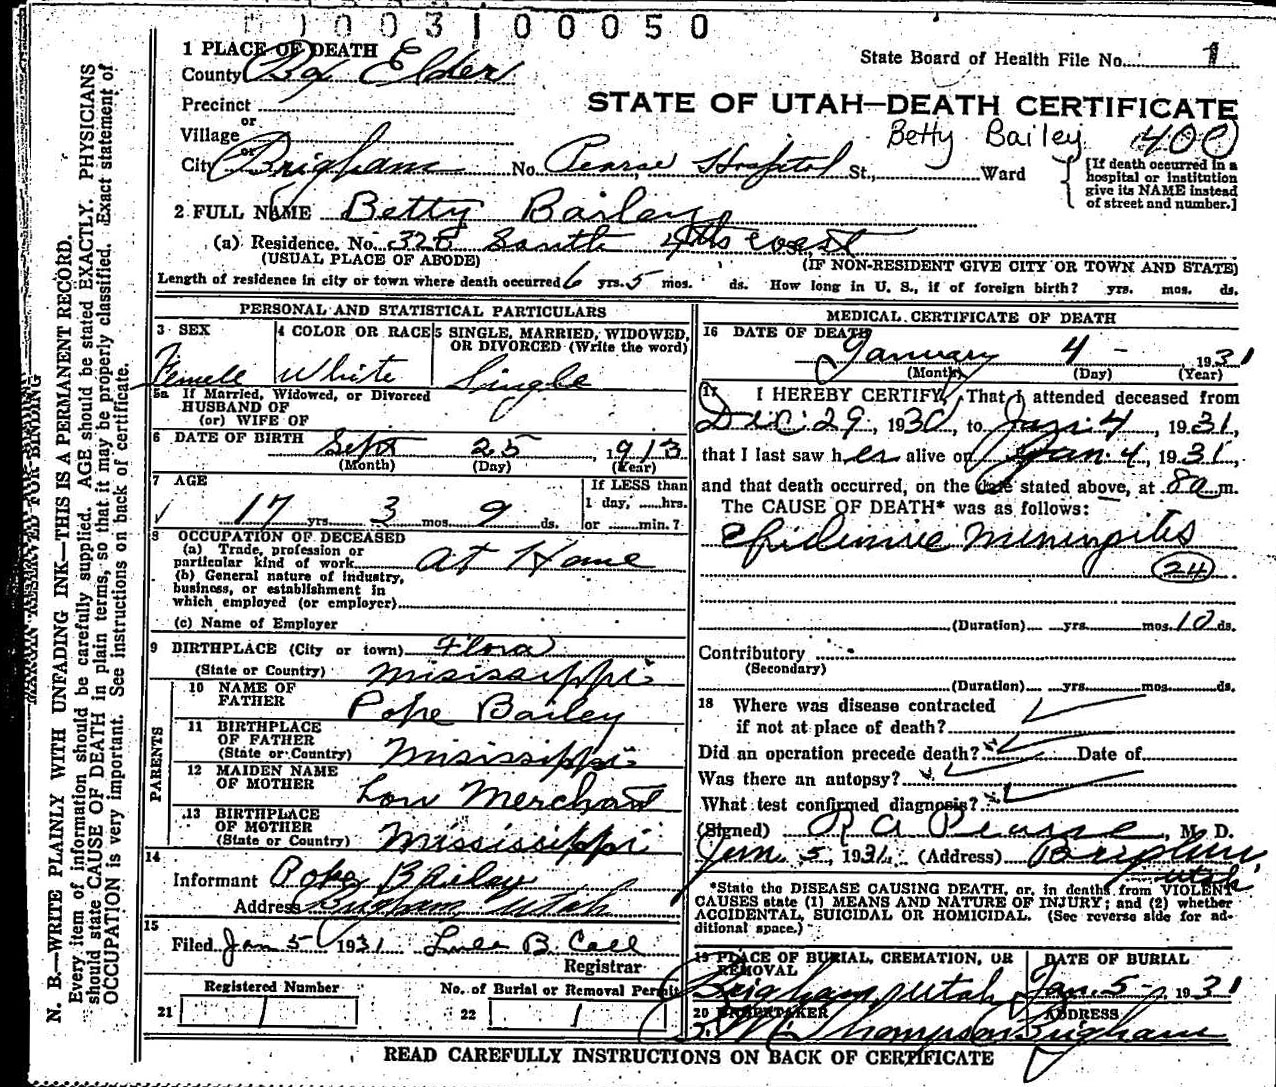 0 0 3 1 0 0 0 5 0
1 PLACE OF DEATH
County Box Elder
State Board of Health File No. 1
Precinct
or
Village
or
City Brigham No. Pearse Hospital St., Ward
STATE OF UTAH—DEATH CERTIFICATE
Betty Bailey 400
[If death occurred in a
hospital or institution
give its NAME instead
of street and number.]
2 FULL NAME Betty Bailey
(a) Residence. No. 328 South 4th east
(USUAL PLACE OF ABODE) (IF NON-RESIDENT GIVE CITY OR TOWN AND STATE)
Length of residence in city or town where death occurred 6 yrs. 5 mos. ds. How long in U. S., if of foreign birth? yrs. mos. ds.
PERSONAL AND STATISTICAL PARTICULARS
3 SEX 4 COLOR OR RACE 5 SINGLE, MARRIED, WIDOWED,
OR DIVORCED (Write the word)
Femell White Single
5a If Married, Widowed, or Divorced
HUSBAND OF
(or) WIFE OF
6 DATE OF BIRTH Sept 25, 1913
(Month) (Day) (Year)
7 AGE
If LESS than
1 day, hrs.
or min.?
17 yrs. 3 mos. 9 ds.
8 OCCUPATION OF DECEASED
(a) Trade, profession or
particular kind of work At Home
(b) General nature of industry,
business, or establishment in
which employed (or employer)
(c) Name of Employer
9 BIRTHPLACE (City or town) Flora
(State or Country) Mississippi
PARENTS
10 NAME OF
FATHER Pope Bailey
11 BIRTHPLACE
OF FATHER
(State or Country) Mississippi
12 MAIDEN NAME
OF MOTHER Lou Merchant
13 BIRTHPLACE
OF MOTHER
(State or Country) Mississippi
14
Informant Pope Bailey
Address Brigham, Utah
15
Filed Jan 5 1931 B. Call
Registrar
Registered Number No. of Burial or Removal Permit
21 1 22 1
MEDICAL CERTIFICATE OF DEATH
16 DATE OF DEATH
January 4 - 1931
(Month) (Day) (Year)
17 I HEREBY CERTIFY, That I attended deceased from
Dec. 29, 1930, to Jan. 4, 1931,
that I last saw her alive on Jan. 4, 1931,
and that death occurred, on the date stated above, at 8a m.
The CAUSE OF DEATH* was as follows:
Epidemic Meningites
24
(Duration) yrs. mos. 10 ds.
Contributory
(Secondary)
(Duration) yrs. mos. ds.
18 Where was disease contracted
if not at place of death?
Did an operation precede death? Date of
Was there an autopsy?
What test confirmed diagnosis?
(Signed) R A Pearse, M. D.
Jan. 5, 1931. (Address) Brigham,
Utah
*State the DISEASE CAUSING DEATH, or, in deaths from VIOLENT
CAUSES state (1) MEANS AND NATURE OF INJURY; and (2) whether
ACCIDENTAL, SUICIDAL OR HOMICIDAL. (See reverse side for ad-
ditional space.)
19 PLACE OF BURIAL, CREMATION, OR
REMOVAL
DATE OF BURIAL
Brigham, Utah Jan. 5 - 1931
20 UNDERTAKER ADDRESS
Thompson Brigham
READ CAREFULLY INSTRUCTIONS ON BACK OF CERTIFICATE
MARGIN RESERVED FOR BINDING
N. B.—WRITE PLAINLY WITH UNFADING INK—THIS IS A PERMANENT RECORD.
Every item of information should be carefully supplied. AGE should be stated EXACTLY. PHYSICIANS
should state CAUSE OF DEATH in plain terms, so that it may be properly classified. Exact statement of
OCCUPATION is very important. See instructions on back of certificate.